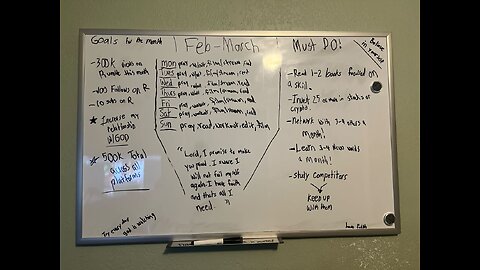 Goals for the month
- 300k views on
Rumble this month
- 100 Follows on R
- 60 subs on R
* Increase my
relationship
w/GOD
* 500k Total
across all
platforms
Try every day
god is watching
Feb-March
mon pray, workout, film/stream, read
Tues pray, workout, film/stream, read
Wed pray, workout, film/stream, read
Thurs pray, workout, film/stream, read
Fri pray, workout, film/stream, read
Sat pray, workout, film/stream, read
Sun pray, read, workout, edit, film
"Lord, I promise to make
you proud. I swear I
will not fail myself
again. I have faith
and thats all I
need."
MUST DO!
Believe
in yourself
- Read 1-2 books focused on
a skill.
- Invest 25 or more in stocks or
crypto.
- Network with 3-4 others a
month!
- Learn 3-4 new words
a month!
- study competitors
Keep up
with them